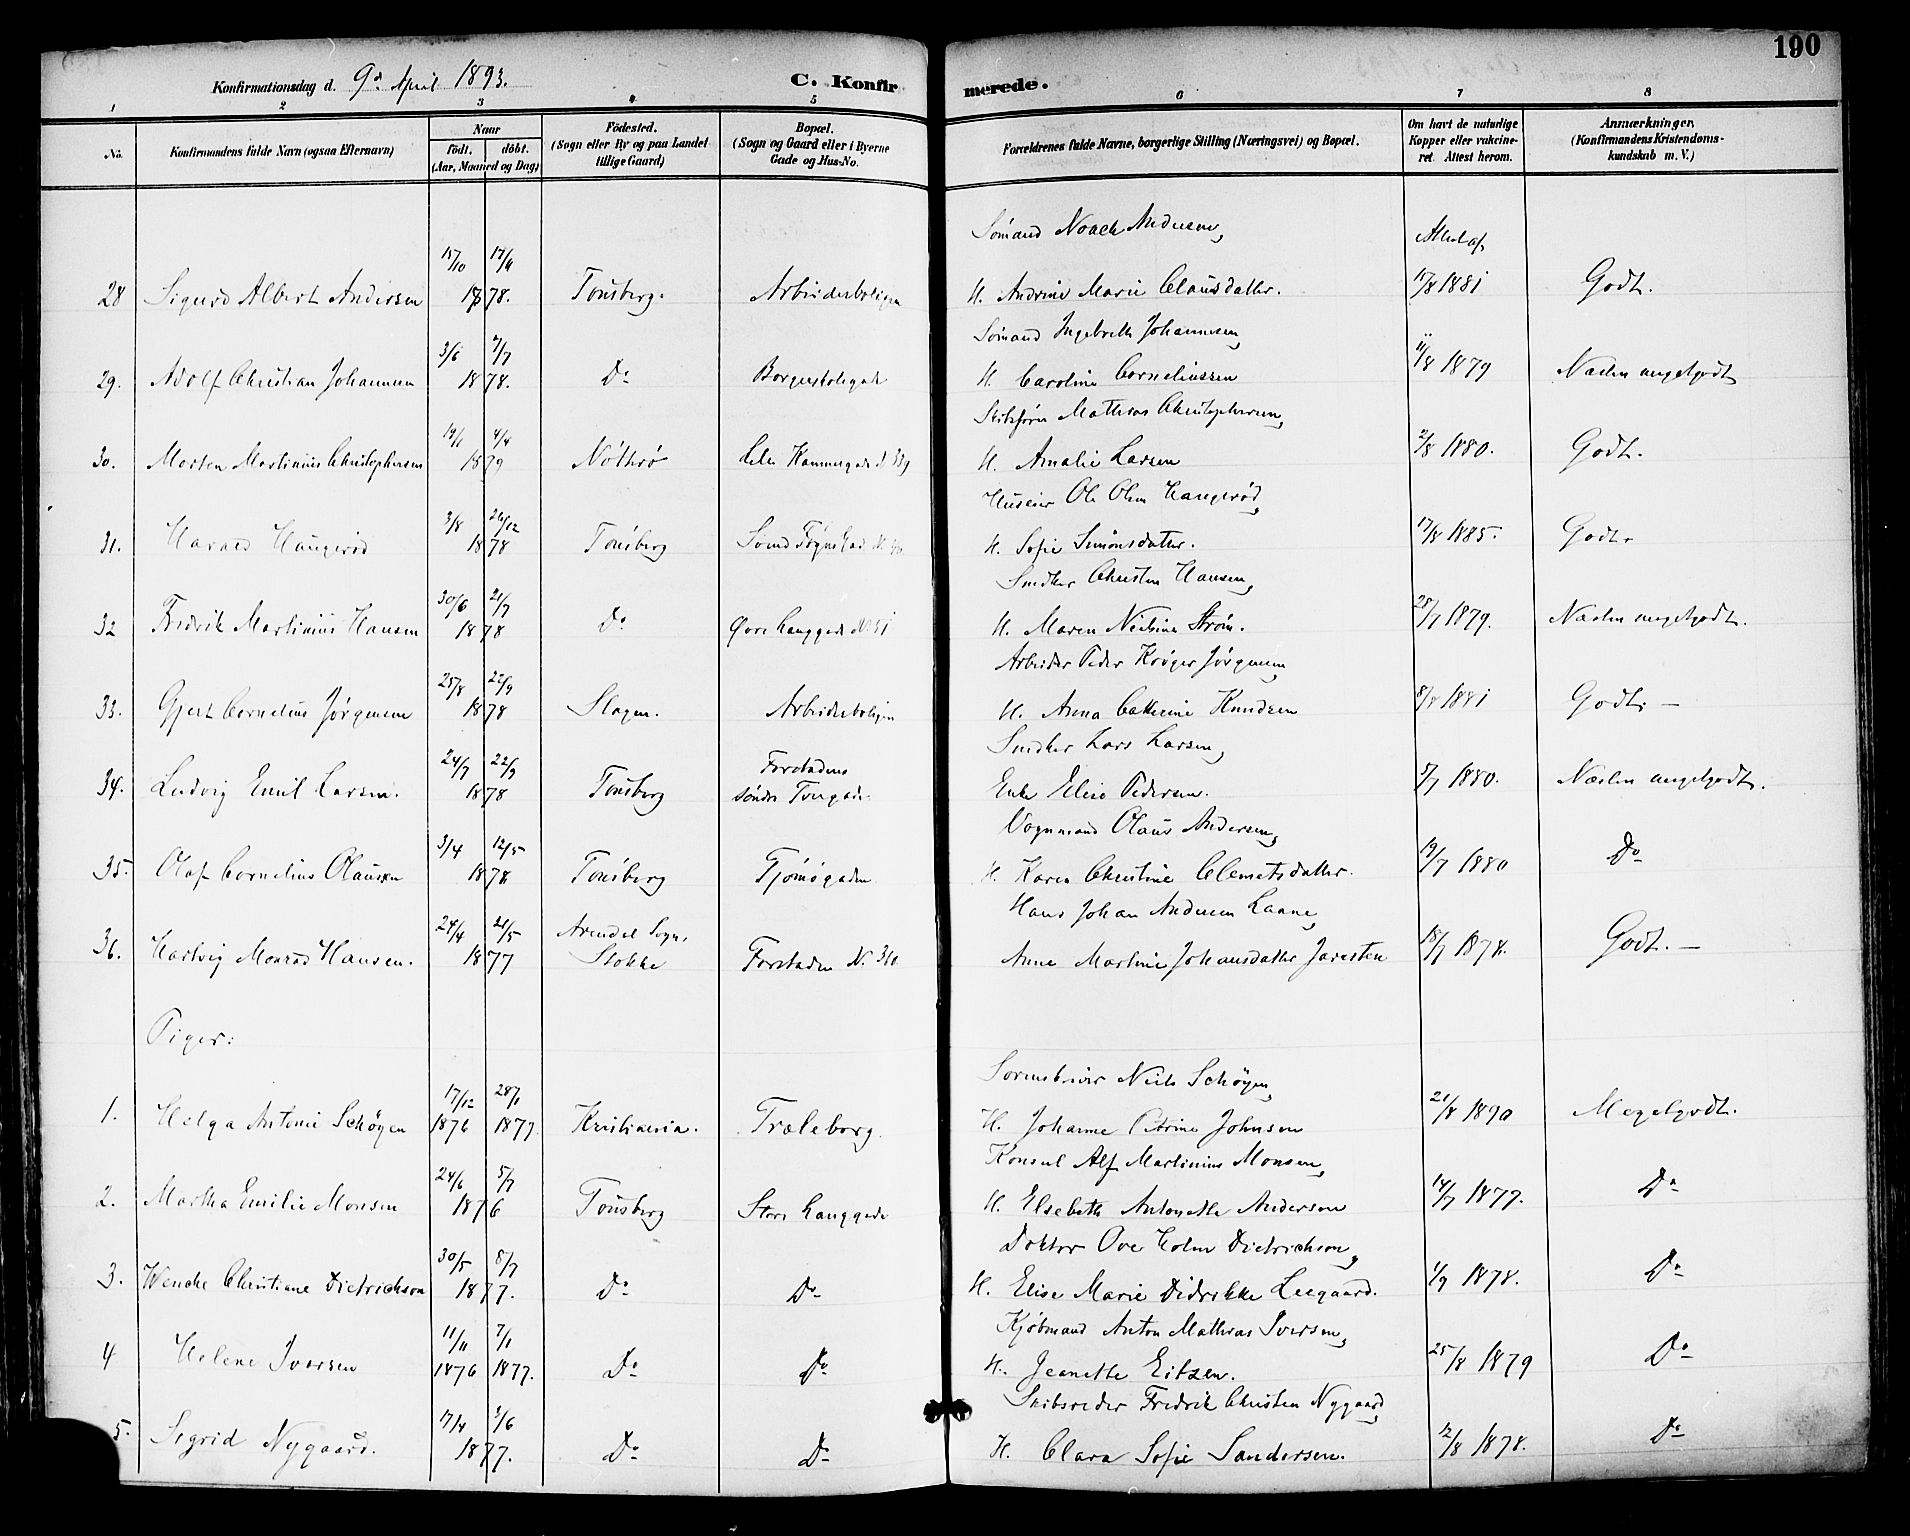 190
Konfirmationsdag d. 9de April 1893.
C. Konfir
merede.
1 2 3 4 5 6 7 8
No.
Konfirmandens fulde Navn (ogsaa Efternavn)
Naar
födt. döbt.
(Aar, Maaned og Dag)
Födested.
(Sogn eller By og paa Landet
tillige Gaard)
Bopæl.
(Sogn og Gaard eller i Byerne
Gade og Hus-No.
Forældrenes fulde Navne, borgerlige Stilling (Næringsvei) og Bopæl.
Om havt de naturlige
Kopper eller vakcine-
ret. Attest herom.
Anmærkninger.
(Konfirmandens Kristendoms-
kundskab m. V.)
Sömand Noach Andersen,
15/10 17/11 Attest af
28 Sigurd Albert Andersen 1878. Tönsberg. Arbeiderboligen H. Andrine Marie Clausdatter. 15/8 1881 Godt.
Sömand Ingebreth Johannesen,
3/6 7/7
29. Adolf Christian Johannesen 1878. Do Borgerskolegade H. Caroline Corneliussen 11/8 1879 Næsten megetgodt
Skibsförer Mathias Christophersen,
19/1 4/4
30. Morten Martinius Christophersen 1879 Nötterö Lille Kammergade H. Amalie Larsen 2/8 1880. Godt.
Huseier Ole Olsen Haugeröd,
3/8 26/12
31. Harald Haugeröd 1878 Tönsberg H. Sofie Simonsdatter. 17/8 1885. Godt.
Snedker Christen Hansen,
30/6 21/7
32 Fredrik Martinius Hansen 1878 Do Övre Langgade No 51 H. Maren Nielsine Ström. 28/7 1879. Næsten megetgodt.
Arbeider Peder Kröger Jörgensen
25/8 22/9
33. Gjert Cornelius Jörgensen 1878 Slagen. Arbeiderboligen H. Anna Cathrine Knudsen 8/8 1881 Godt. —
Snedker Lars Larsen,
24/7 22/9 Forstadens
34. Ludvig Emil Larsen. 1878 Tönsberg söndre Tvergade. Enke Elise Pedersen. 5/7 1880. Næsten megetgodt.
Vognmand Olaus Andersen,
3/4 12/5
35. Olaf Cornelius Olausen 1878 Tönsberg Tjömögaden H. Karen Christine Clemetsdatter. 19/7 1880 Do
Hans Johan Andersen Laane,
24/4 21/5 Arendal Sogn,
36. Hartvig Monrad Hansen. 1877 Stokke Forstaden N. H. Anne Martine Johansdatter Jaresten 18/7 1878. Godt. —
Piger:
Sorenskriver Niels Schöyen,
17/12 28/1
1. Helga Antonie Schöyen 1876 1877. Kristiania. Træleborg. H. Johanne Petrine Johnsen 21/8 1890 Megetgodt.
Konsul Alf Martinius Monsen,
24/6 5/7
2. Martha Emilie Monsen 1876 Tönsberg Store Langgade H. Elsebeth Antonette Andersen 14/7 1877. Do
Doktor Ove Holm Dietrichson,
30/5 8/7
3. Wenche Christiane Dietrichson 1877. Do Do H. Elise Marie Didrikke Leegaard. 1/9 1878. Do
Kjöbmand Anton Mathias Iversen,
11/11 7/1
4 Helene Iversen 1876 1877. Do Do H. Jeanette Eitzen. 25/8 1879 Do
Skibsreder Fredrik Christen Nygaard,
17/4 3/6
5. Sigrid Nygaard. 1877. Do Do H. Clara Sofie Sandersen. 12/8 1878. Do